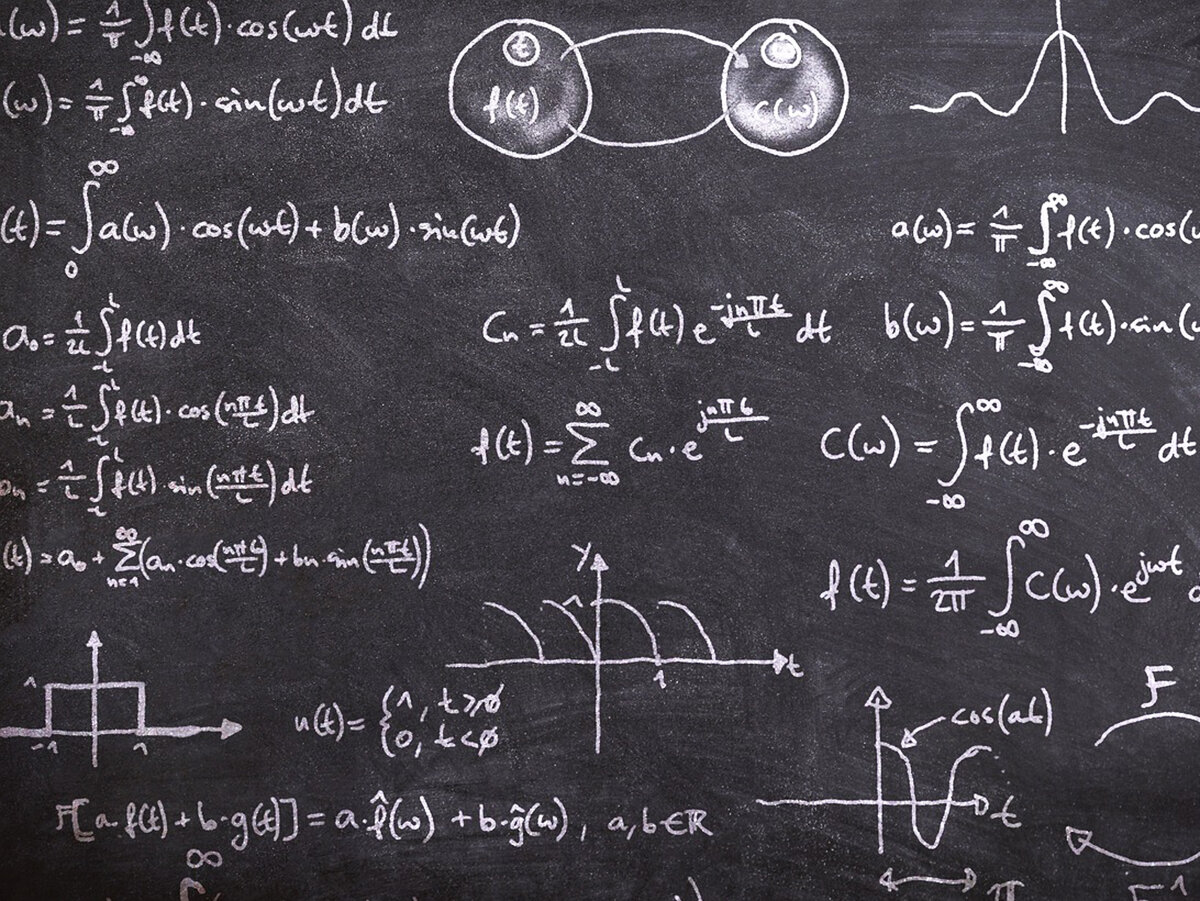 (ω) = 1/π ∫_{-∞} f(t)·cos(ωt) dt
(ω) = 1/π ∫_{-∞}^{∞} f(t)·sin(ωt) dt
t
f(t)
ω
C(ω)
(t) = ∫_0^∞ a(ω)·cos(ωt) + b(ω)·sin(ωt)
a(ω) = 1/π ∫_{-∞}^{∞} f(t)·cos(
b(ω) = 1/π ∫_{-∞}^{∞} f(t)·sin(
a₀ = 1/2L ∫_{-L}^{L} f(t) dt
Cn = 1/2L ∫_{-L}^{L} f(t) e^{-jnπt/L} dt
an = 1/L ∫_{-L}^{L} f(t)·cos(nπt/L) dt
f(t) = ∑_{n=-∞}^{∞} Cn·e^{jnπt/L}
C(ω) = ∫_{-∞}^{∞} f(t)·e^{-jnπt/L} dt
bn = 1/L ∫_{-L}^{L} f(t)·sin(nπt/L) dt
(t) = a₀ + ∑_{n=1}^{∞} (an·cos(nπt/L) + bn·sin(nπt/L))
f(t) = 1/2π ∫_{-∞}^{∞} C(ω)·e^{jωt}
y
1
t
1
1
-1
1
u(t) = {1, t≥0
0, t<0
cos(at)
t
F
F[a·f(t) + b·g(t)] = a·f̂(ω) + b·ĝ(ω), a, b ∈ ℝ
∞
π
F⁻¹